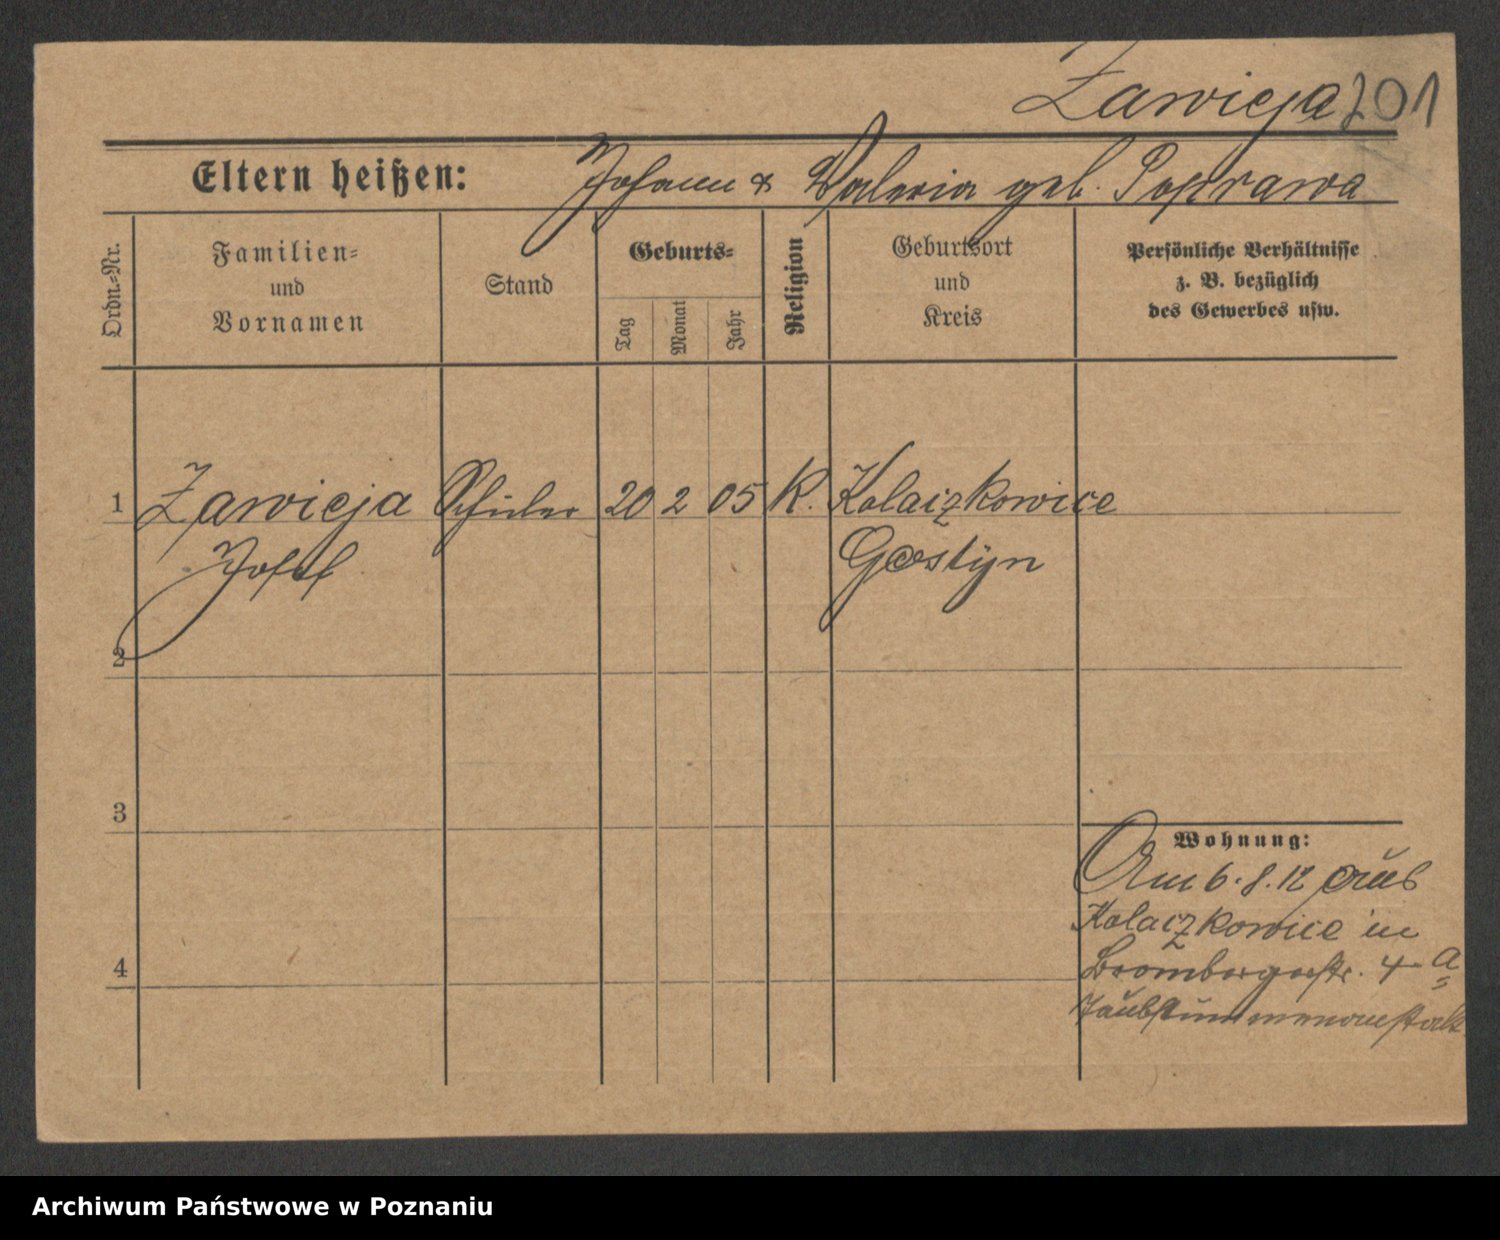 Zawieja 201
Eltern heißen: Johann & Valeria geb. Poprawa
Ordn.-Nr.
Familien-
und
Vornamen
Stand
Geburts-
Tag
Monat
Jahr
Religion
Geburtsort
und
Kreis
Persönliche Verhältnisse
z. B. bezüglich
des Gewerbes usw.
1 Zawieja Schüler 20 2 05 K. Kolaczkowice
Josef Gostyn
2
3
Wohnung:
Am 6. 8. 12 aus
Kolaczkowice in
4 Brombergerstr. 4 a
Taubstummenanstalt
Archiwum Państwowe w Poznaniu